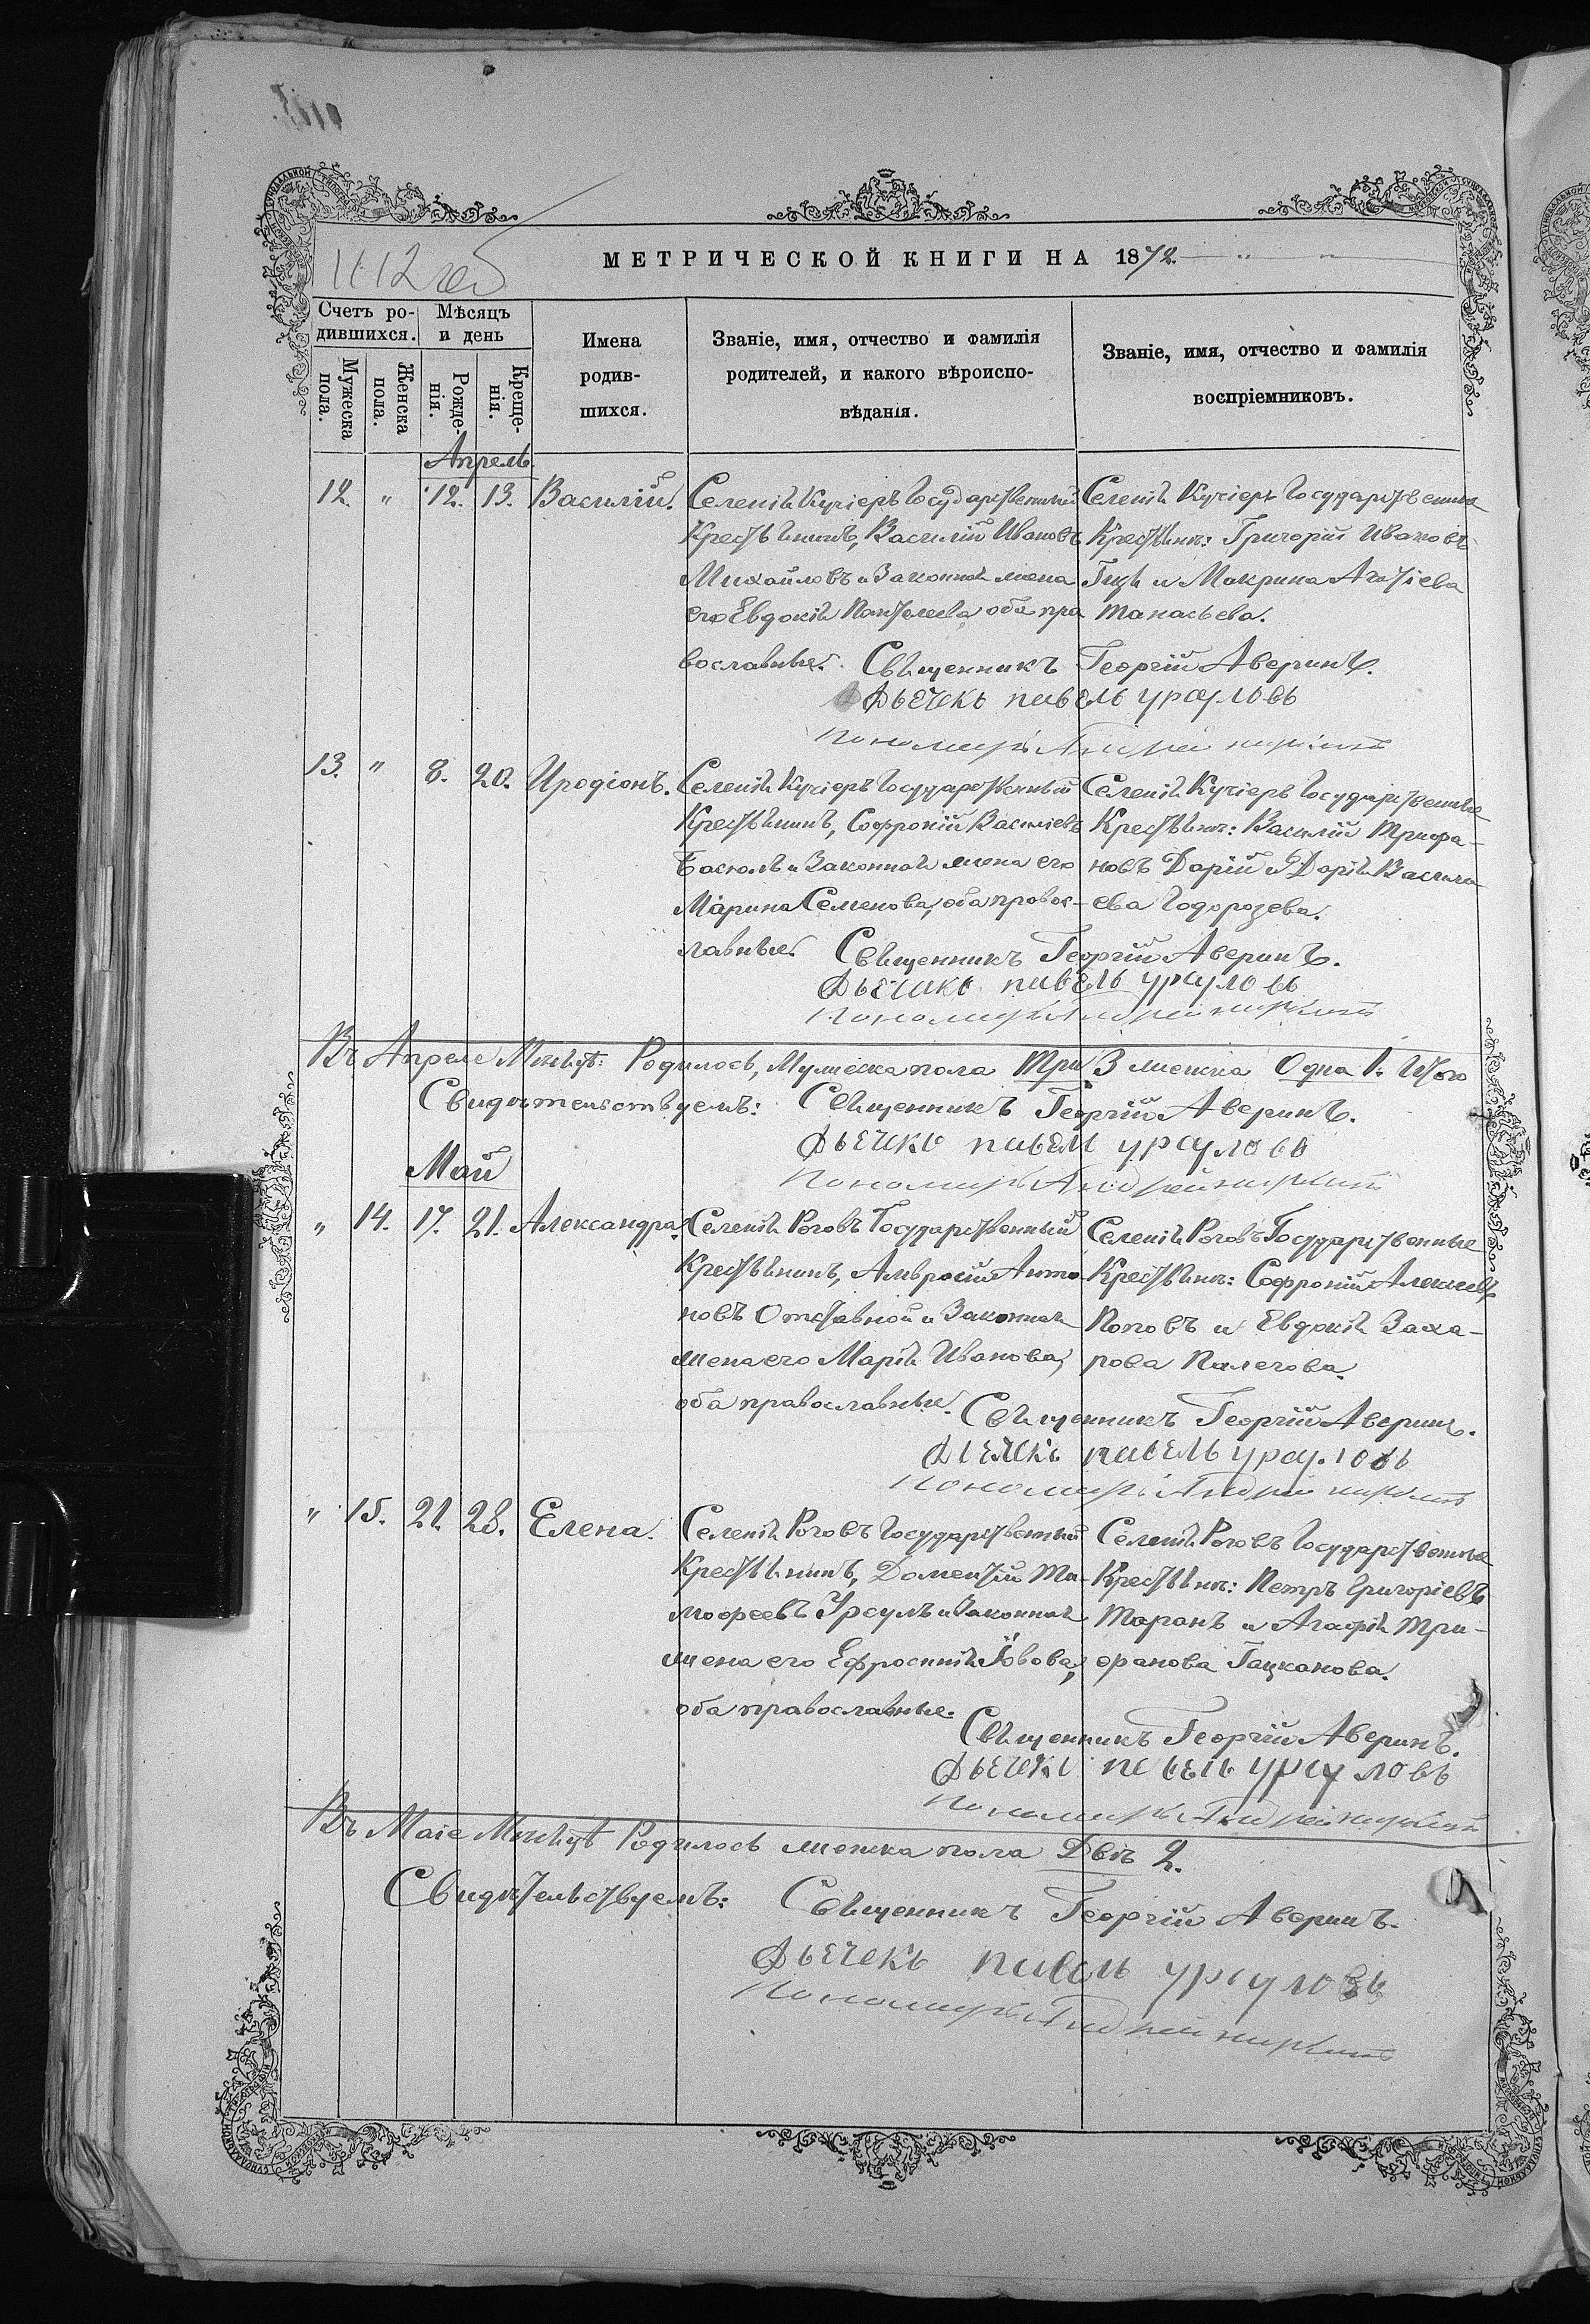 МЕТРИЧЕСКОЙ КНИГИ НА 1872
Счетъ ро-
дившихся.
Мужеска
пола.
Женска
пола.
Мѣсяцъ
и день
Рожде-
нія.
Креще-
нія.
Имена
родив-
шихся.
Званіе, имя, отчество и фамилія
родителей, и какого вѣроиспо-
вѣданія.
Званіе, имя, отчество и фамилія
воспріемниковъ.
Апрель
12. " 12. 13. Василій.
Селенія Кучіеръ Государственный
Крестьянинъ, Василій Ивановъ
Михайловъ и Законная жена
его Евдокія Пантелеева оба пра
вославные.
Селенія Кучіеръ Государственные
Крестьяне: Григорій Ивановъ
и Макрина
танасьева.
Священникъ Георгій Аверинъ.
Дьечекъ павелъ урсуловъ
Пономарь Андрей
13. " 8. 20. Иродіонъ.
Селенія Кучіеръ Государственный
Крестьянинъ, Софроній Василіевъ
и Законная жена его
Марина Семенова, оба провос-
лавные.
Селенія Кучіеръ Государственные
Крестьяне: Василій Трифа-
новъ Дарій и Дарія Васили-
ева Тодорозева.
Священникъ Георгій Аверинъ.
Дьечекъ павелъ урсуловъ
Пономарь Андрей
Въ Апреле Месяце: Родилось, Мужеска пола Три 3 женска Одна 1. Итого
Свидѣтельствуемъ: Священникъ Георгій Аверинъ.
Дьечекъ павел урсуловъ
Пономарь Андрей
Май
" 14. 17. 21. Александра.
Селенія Роговъ Государственный
Крестьянинъ, Амвросій Анто-
новъ Отставной и Законная
жена его Марія Иванова,
оба православные.
Селенія Роговъ Государственные
Крестьяне: Софроній Алексеевъ
Поповъ и Евдокія Заха-
рова Палегова.
Священникъ Георгій Аверинъ.
Дьечекъ павелъ урсуловъ
Пономарь Андрей
" 15. 21. 28. Елена.
Селенія Роговъ Государственный
Крестьянинъ, Доментій Ти-
мофеевъ Урсулъ и Законная
жена его Ефросинія Іовова,
оба православные.
Селенія Роговъ Государственные
Крестьяне: Петръ Григоріевъ
Таранъ и Агафія Три-
фанова Гацканова.
Священникъ Георгій Аверинъ.
Дьечекъ павелъ урсуловъ
Пономарь Андрей
Въ Маіе Месяцѣ Родилось женска пола Двѣ 2.
Свидѣтельствуемъ: Священникъ Георгій Аверинъ.
Дьечекъ павелъ урсуловъ
Пономарь Андрей